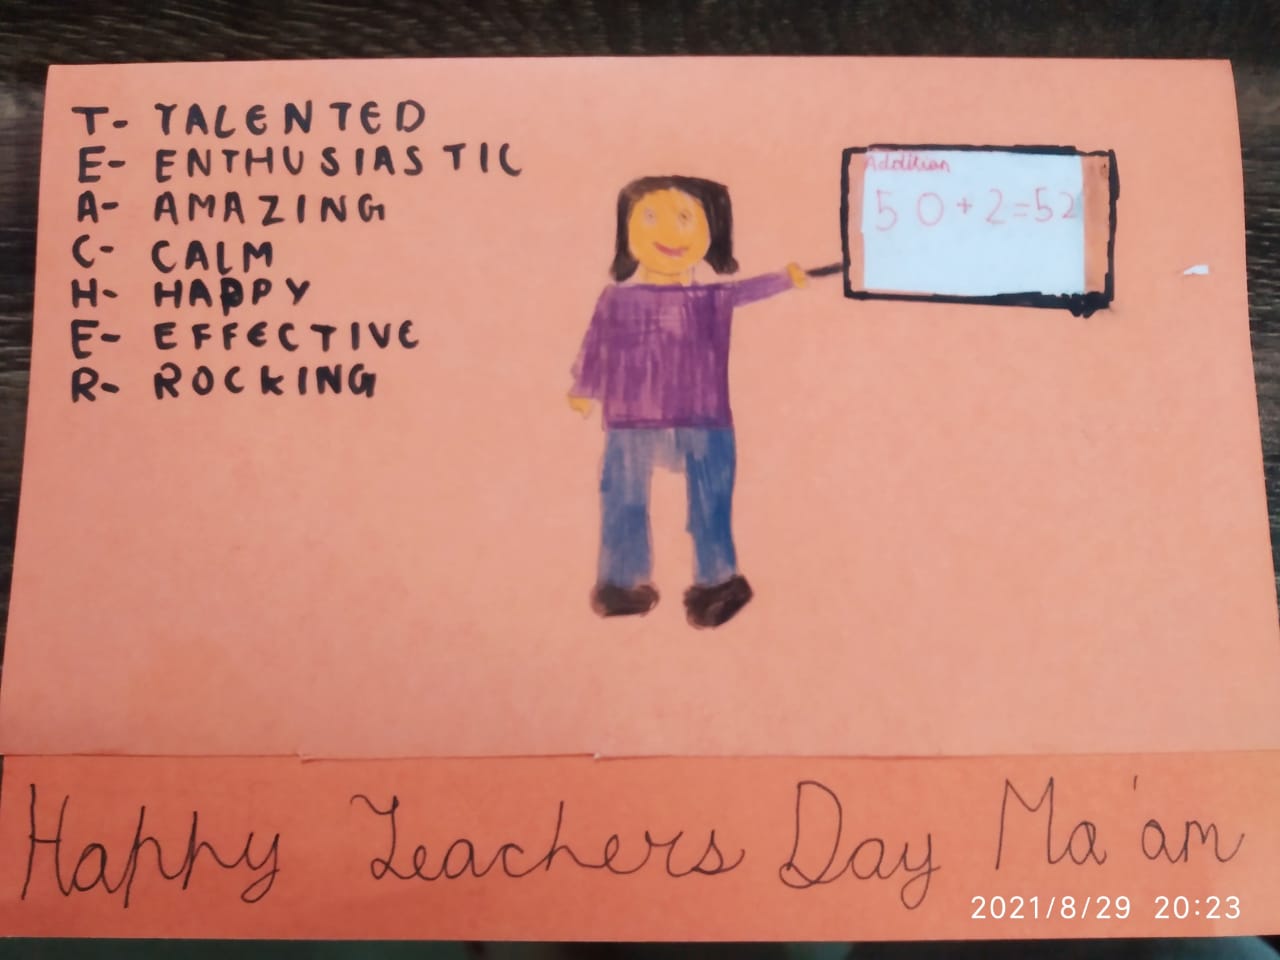 T- TALENTED
E- ENTHUSIASTIC
A- AMAZING
C- CALM
H- HAPPY
E- EFFECTIVE
R- ROCKING
Addition
50+2=52
Happy Teachers Day Ma'am
2021/8/29 20:23